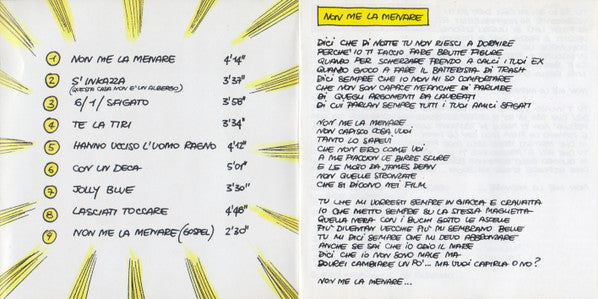 1 NON ME LA MENARE 4'14"
2 S'INKAZZA 3'37"
(QUESTA CASA NON È UN ALBERGO)
3 6/1/SFIGATO 3'58"
4 TE LA TIRI 3'34"
5 HANNO UCCISO L'UOMO RAGNO 4'12"
6 CON UN DECA 5'01"
7 JOLLY BLUE 3'30"
8 LASCIATI TOCCARE 4'46"
9 NON ME LA MENARE (GOSPEL) 2'30"
NON ME LA MENARE
DICI CHE DI NOTTE TU NON RIESCI A DORMIRE
PERCHE' IO TI FACCIO FARE BRUTTE FIGURE
QUANDO PER SCHERZARE PRENDO A CALCI I TUOI EX
QUANDO GIOCO A FARE IL BATTERISTA DI TRASH
DICI SEMPRE CHE IO NON MI SO COMPORTARE
CHE NON SON CAPACE NEANCHE DI PARLARE
DI QUEGLI ARGOMENTI DA LAUREATI
DI CUI PARLAN SEMPRE TUTTI I TUOI AMICI SFIGATI
NON ME LA MENARE
NON CAPISCO COSA VUOI
TANTO LO SAPEVI
CHE NON ERO COME VOI
A ME PIACCION LE BIRRE SCURE
E LE MOTO DA JAMES DEAN
NON QUELLE STRONZATE
CHE SI DICONO NEI FILM
TU CHE MI VORRESTI SEMPRE IN GIACCA E CRAVATTA
IO CHE METTO SEMPRE SU LA STESSA MAGLIETTA
QUELLA NERA CON I BUCHI SOTTO LE ASCELLE
PIU' DILENTAN VECCHIE PIU' MI SEMBRANO BELLE
TU MI DICI SEMPRE CHE MI DEVO ABBRONZARE
ANCHE SE SAI CHE IO ODIO IL MARE
DICI CHE IO NON SONO MALE MA
DOVREI CAMBIARE UN PO'... MA VUOI CAPIRLA O NO?
NON ME LA MENARE...